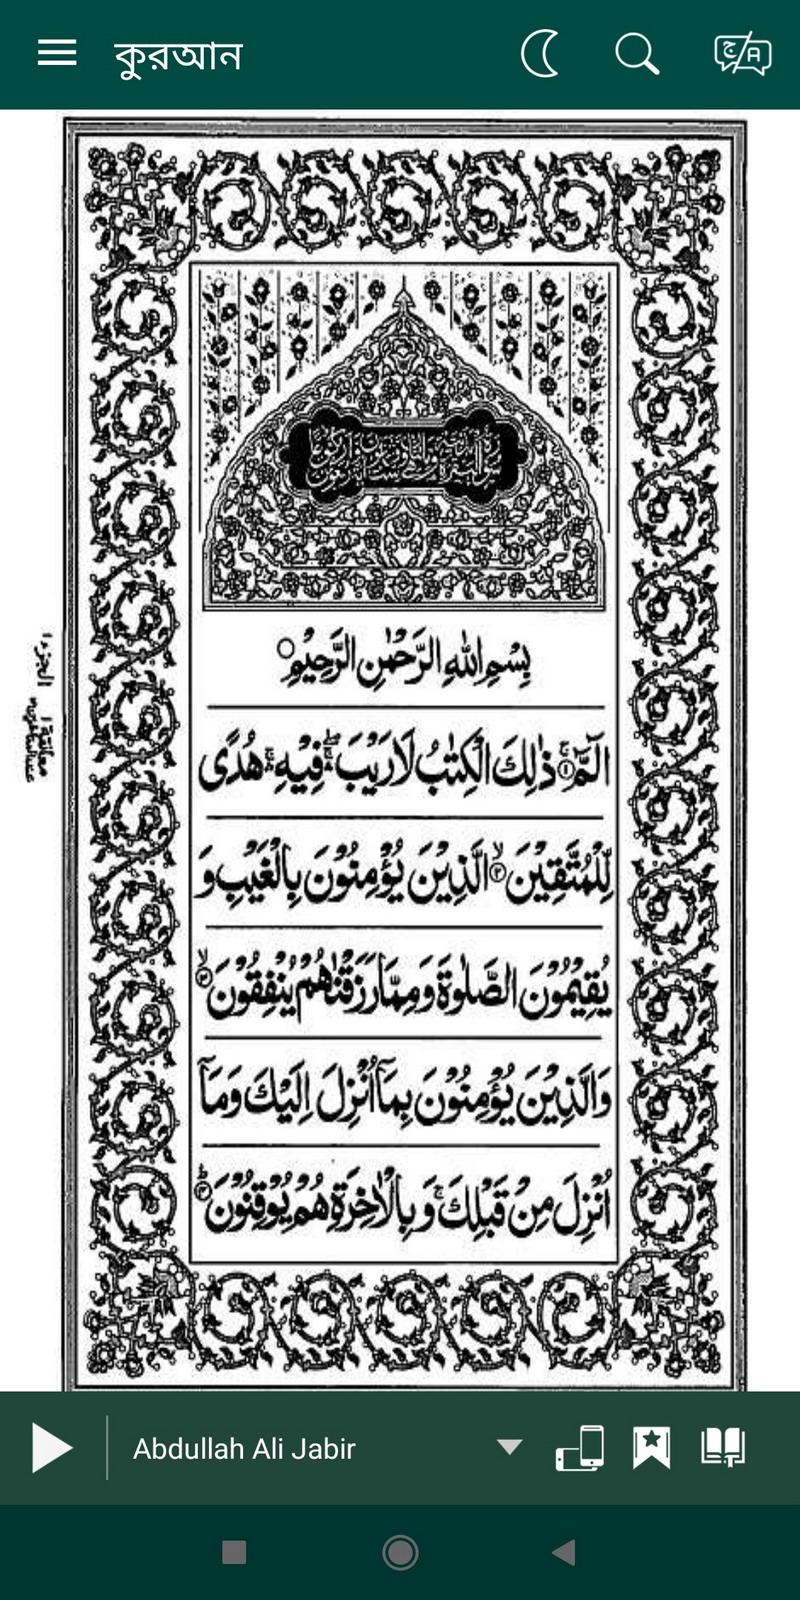 কুরআন
بِسْمِ اللهِ الرَّحْمٰنِ الرَّحِيْمِ○
الٓمّٓ ۚ﴿۱﴾ ذٰلِكَ الْكِتٰبُ لَا رَيْبَ ۛۖ فِيْهِ ۛۚ هُدًى
لِّلْمُتَّقِيْنَ ۙ﴿۲﴾ الَّذِيْنَ يُؤْمِنُوْنَ بِالْغَيْبِ وَ
يُقِيْمُوْنَ الصَّلٰوةَ وَمِمَّا رَزَقْنٰهُمْ يُنْفِقُوْنَ ۙ﴿۳﴾
وَالَّذِيْنَ يُؤْمِنُوْنَ بِمَآ اُنْزِلَ اِلَيْكَ وَمَآ
اُنْزِلَ مِنْ قَبْلِكَ ۚ وَ بِالْاٰخِرَةِ هُمْ يُوْقِنُوْنَ ؕ﴿۴﴾
Abdullah Ali Jabir